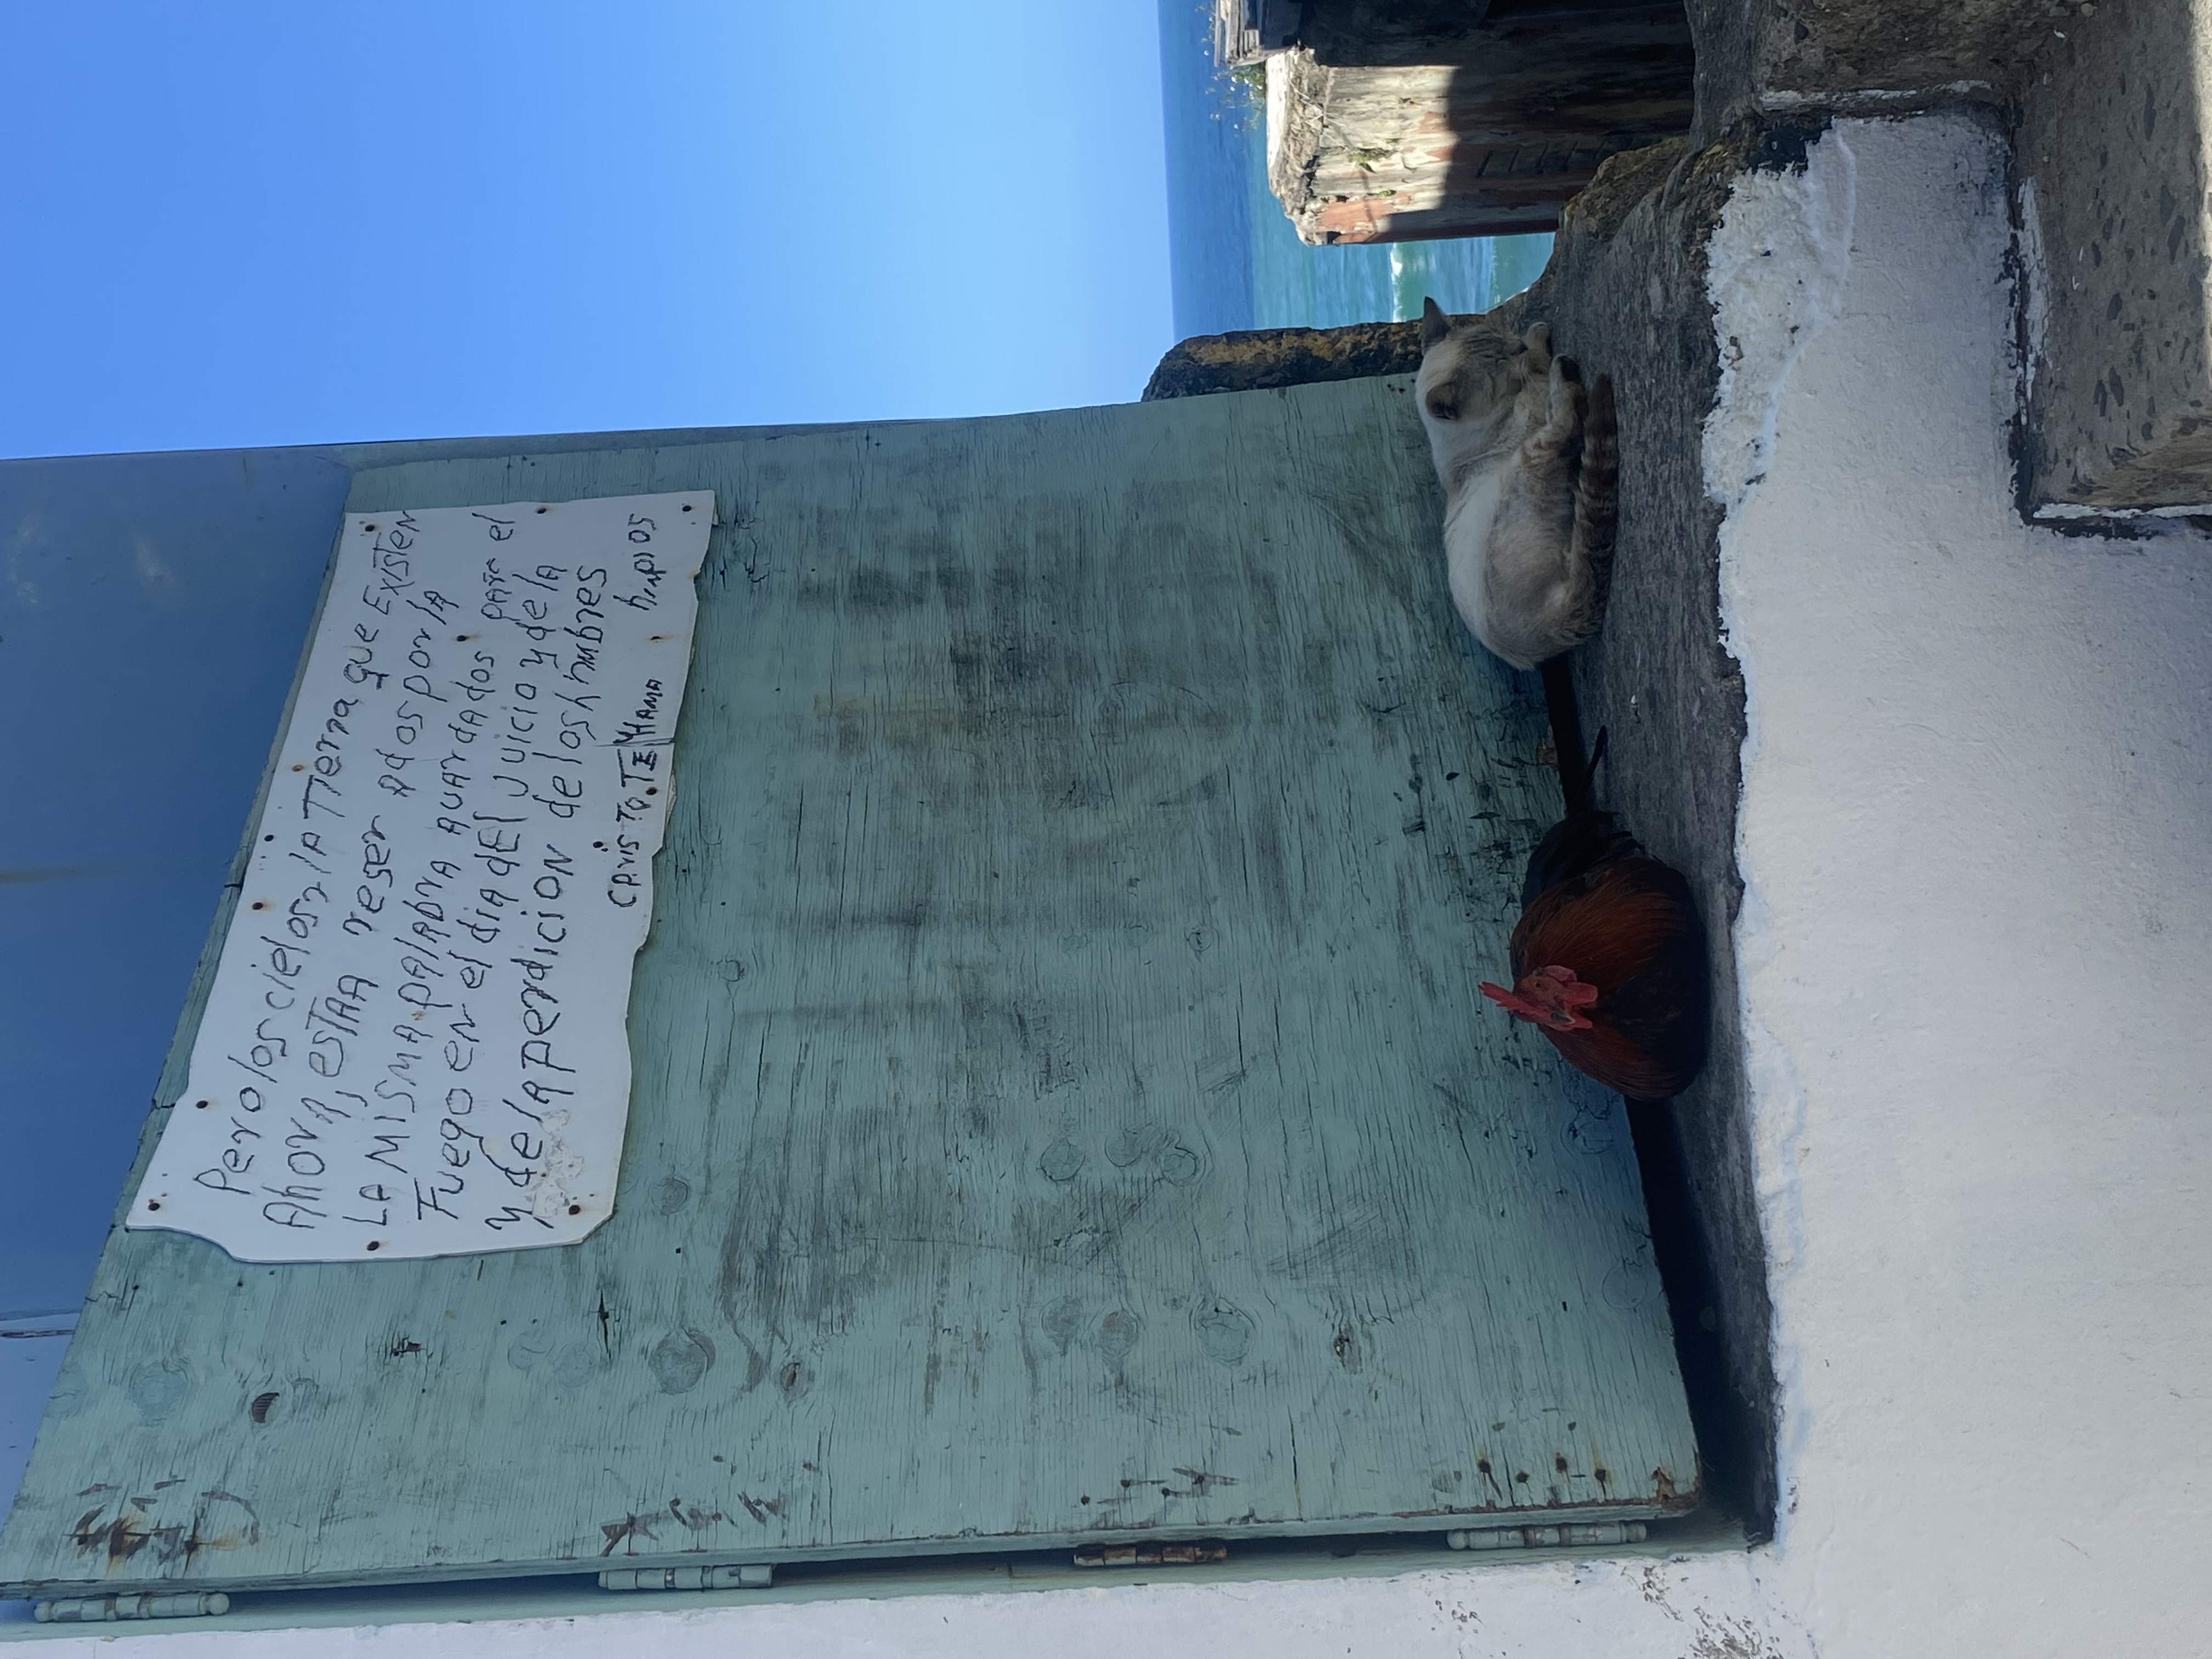 Pero los cielos y la Tierra que Existen
Ahora, estaa reser ados por la
LA MISMA palabra guardados para el
Fuego en el dia del juicio y de la
y de la perdicion de los hombres
impios
CRristo TE llama